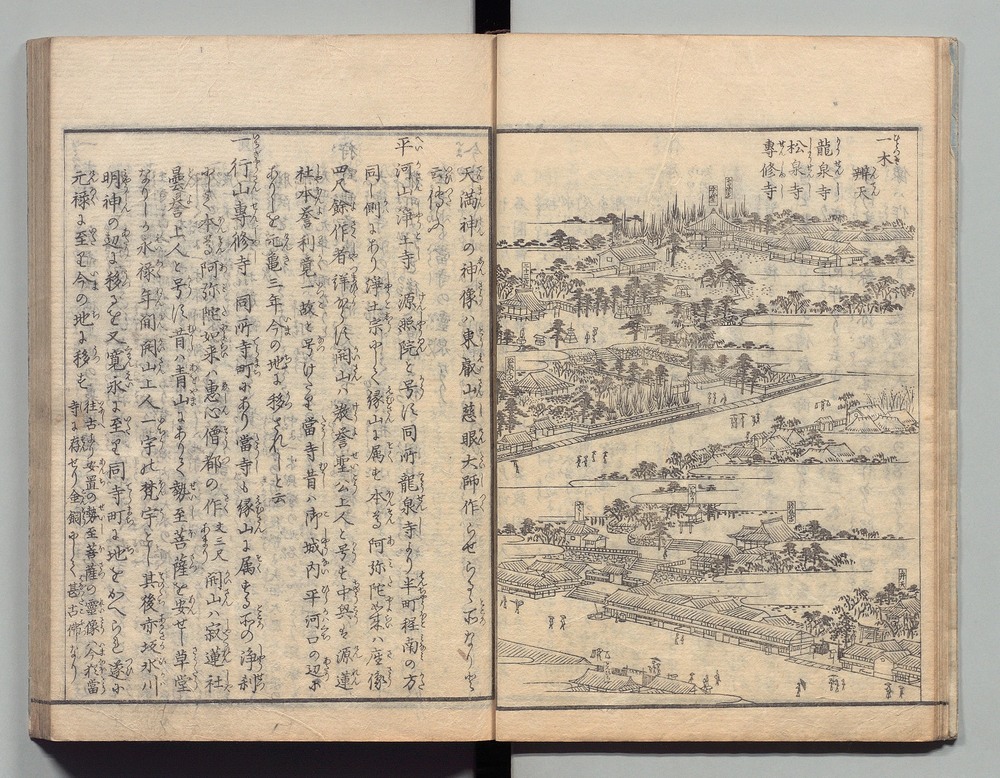 一木
辨天
龍泉寺
松泉寺
專修寺
天満神の神像ハ東叡山慈眼大師作らせらるゝ所なりと
云傳ふ
平河山浄土寺 源照院と号す同所龍泉寺より半町程南の方
同し側にあり浄土宗にして縁山に属す本尊阿弥陀如来ハ座像
四尺餘作者詳ならす開山ハ教誉聖公上人と号す中興を源蓮
社本誉利覚一故と号けたり當寺昔ハ御城内平河口の辺に
ありしを元亀三年今の地に移されしと云
一行山專修寺 同所寺町にあり當寺も縁山に属する所の浄刹
にして本尊阿弥陀如来ハ恵心僧都の作 文三尺 開山ハ寂蓮社
曇誉上人と号す昔ハ青山にありて勢至菩薩を安せし草堂
なりしか永禄年間開山上人一宇の梵宇とし其後赤坂氷川
明神の辺に移るを又寛永に至り同寺町に地をかへらる遂に
元禄に至て今の地に移る
往古より安置の勢至菩薩の霊像ハ今於當
寺に存せり金銅にして甚古佛なり